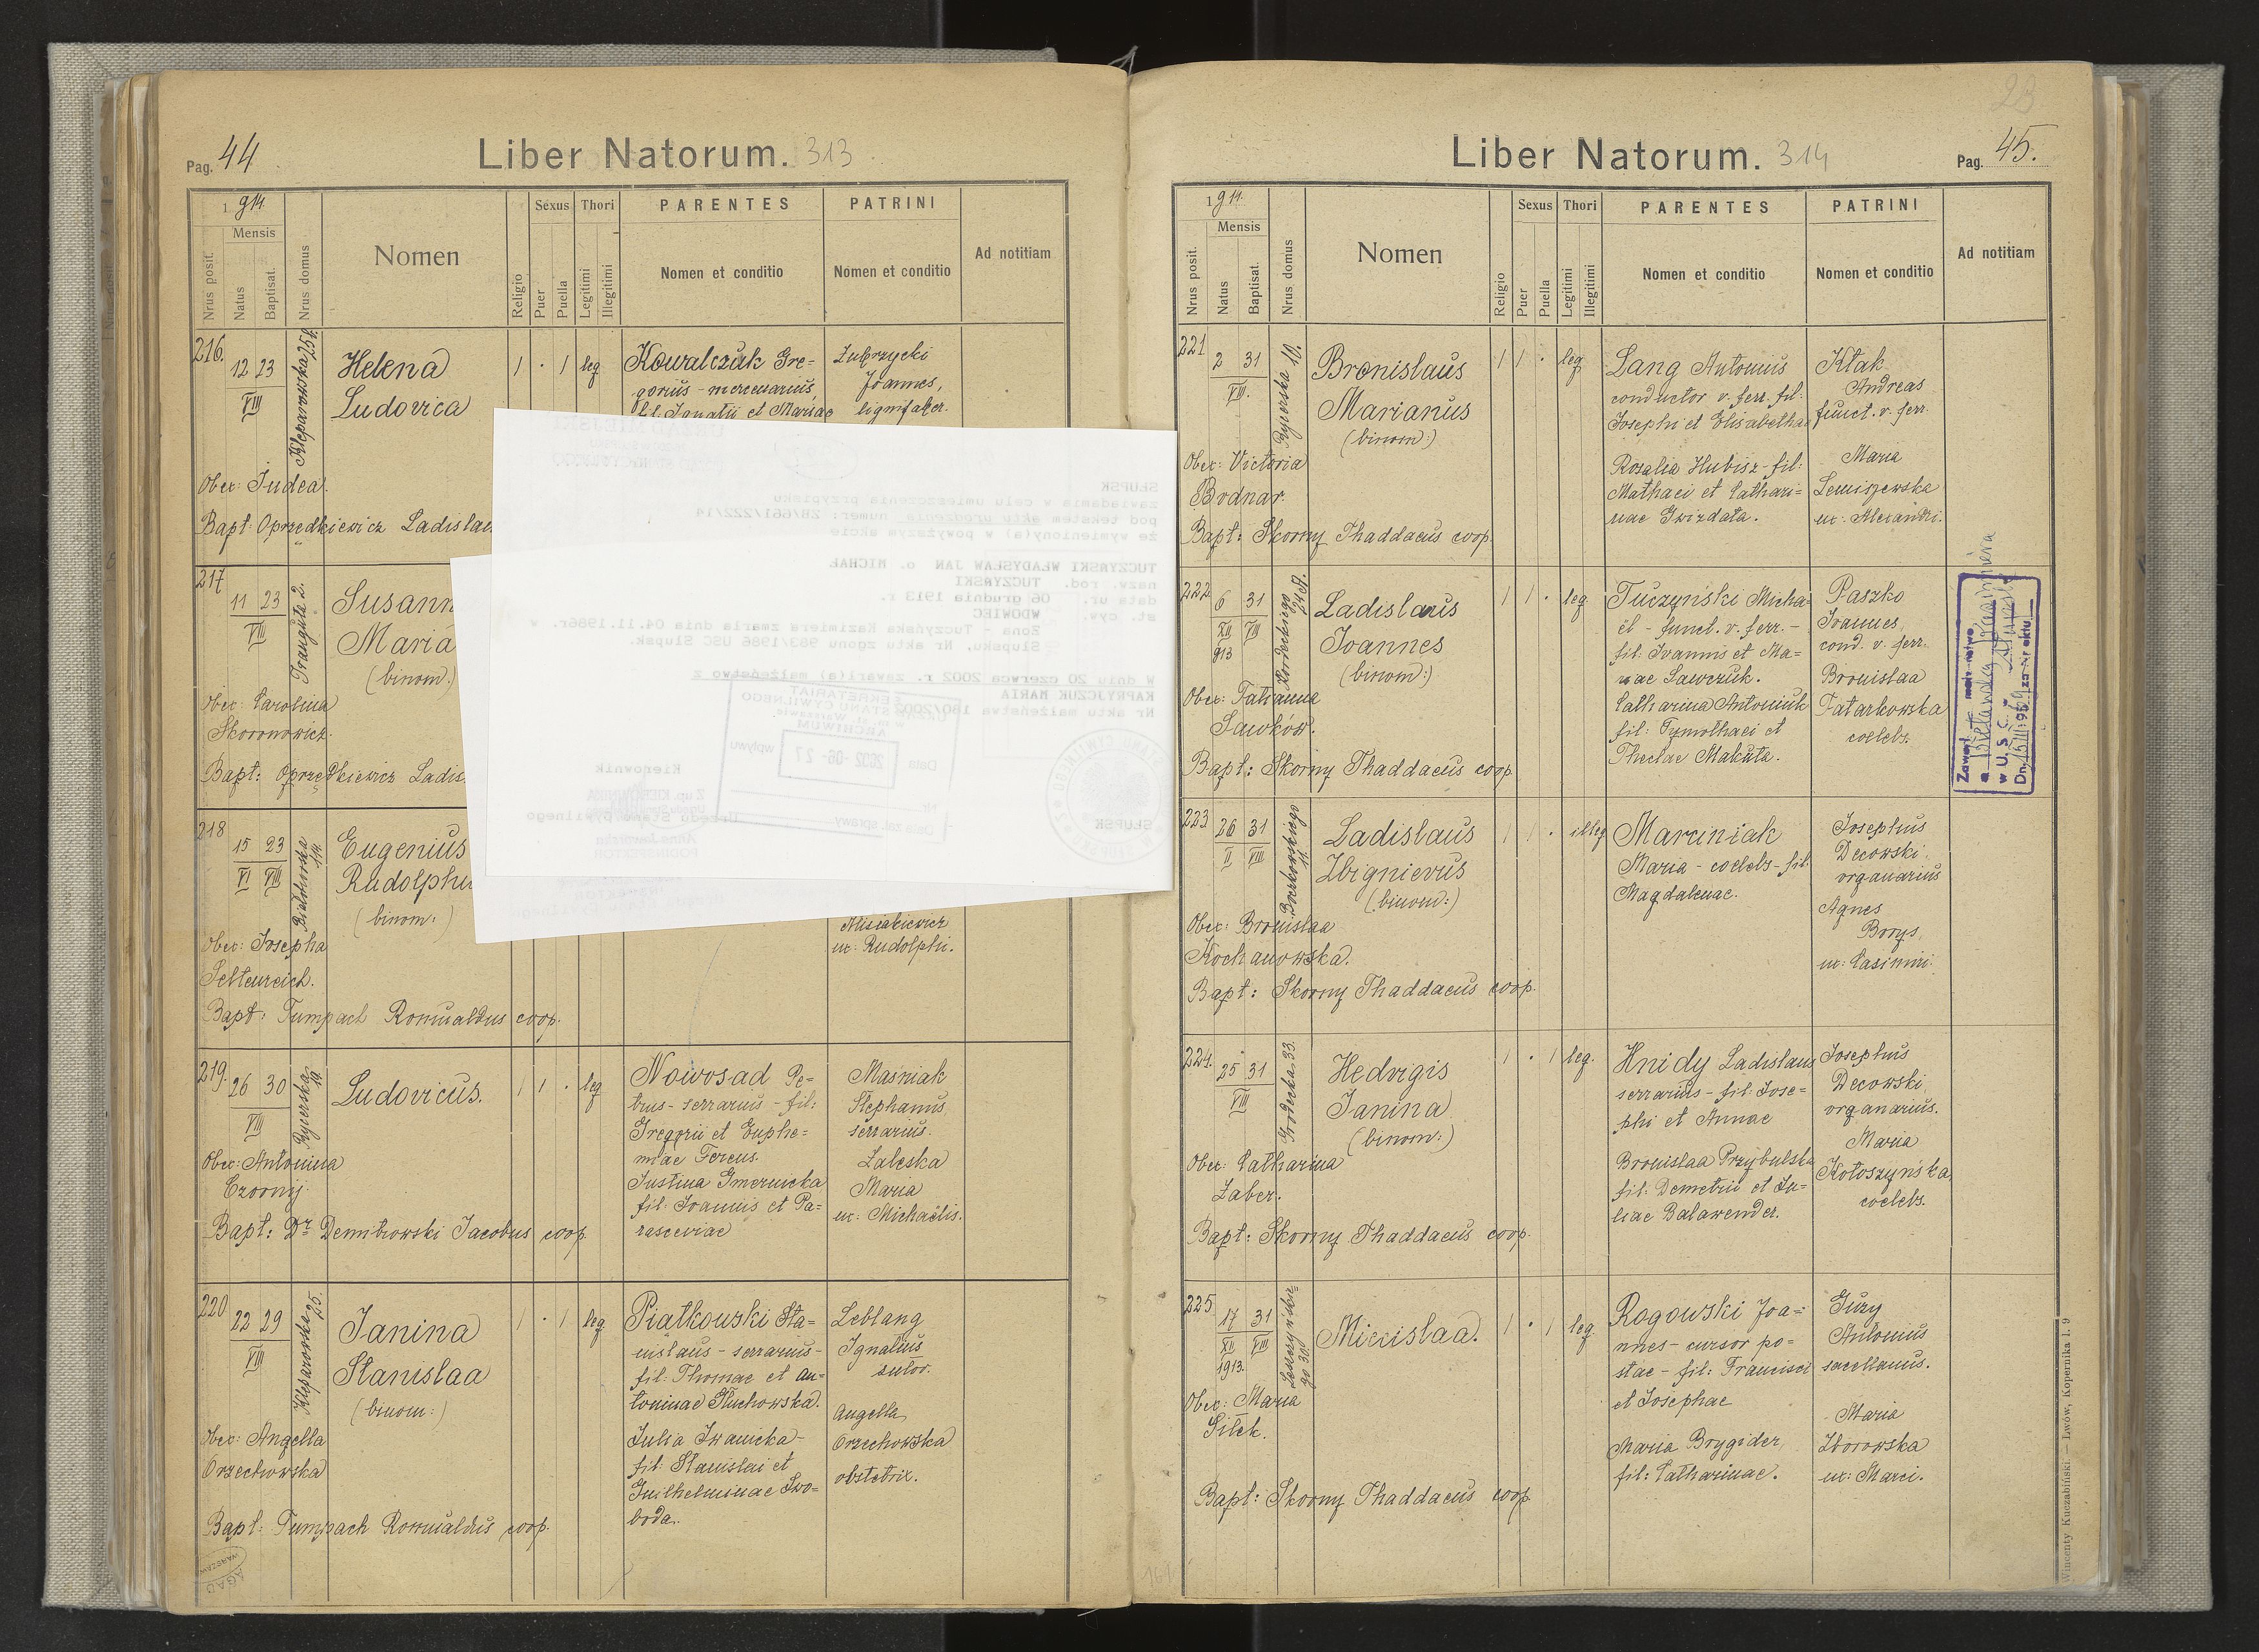 Pag. 44
Liber Natorum. 313
1914.
Mensis
Nrus posit.
Natus
Baptisat.
Nrus domus
Nomen
Religio
Sexus
Puer
Puella
Thori
Legitimi
Illegitimi
PARENTES
Nomen et conditio
PATRINI
Nomen et conditio
Ad notitiam
216.
12 23
VIII
Kleparowska 25
Helena
Ludovica
1 · 1 leg
Kowalczuk Gre-
gorius - mercenarius,
fil. Ignatii et Mariae
Zubrzycki
Joannes,
lignifaber.
Obex: Judea.
Bapt: Oprzędkiewicz Ladislau
217
11 23
VIII
Trauguta 2.
Susann
Maria
(binom.)
Obex: Carolina
Skoronowicz.
Bapt: Oprzędkiewicz Ladis.
218
15 23
VI VIII
114.
Eugenius
Rudolphu
(binom:)
Misiakiewicz
ux: Rudolphi.
Obex: Josepha
Selteureich.
Bapt: Tumpach Romualdus coop.
219.
26 30
VIII
Ryerska 19.
Ludovicus.
1 1 · leg
Nowosad Pe-
trus - serrarius - fil:
Gregorii et Euphe=
miae Fercus.
Justina Gmernicka
fil: Joannis et Pa=
rasceviae
Maśniak
Stephanus
serrarius.
Zaleska
Maria
ux: Michaëlis.
Obex: Antonina
Czornij.
Bapt: Dr Demitrowski Jacobus coop.
220
22 29
VIII
Kleparowska 25.
Janina
Stanislaa
(binom:)
1 · 1 leg
Piatkowski Sta=
nislaus - serrarius -
fil: Thomae et An=
toninae Głuchowska.
Julia Iwanicka -
fil: Stanislai et
Guilhelminae Swo=
boda.
Leblang
Ignatius
sutor.
Angella
Orzechowska
obstetrix.
Obex: Angella
Orzechowska
Bapt: Tumpach Romualdus coop.
AGAD
WARSZAWA
SŁUPSK
zawiadamia w celu umieszczenia przypisku
pod tekstem aktu urodzenia numer: 28/661/222/14
że wymieniony(a) w powyższym akcie
TUCZYŃSKI WŁADYSŁAW JAN o. MICHAŁ
nazw. rod. TUCZYŃSKI
data ur. 06 grudnia 1913 r.
st. cyw. WDOWIEC
Żona - Tuczyńska Kazimiera zmarła dnia 04.11.1986r. w
Słupsku. Nr aktu zgonu 983/1986 USC Słupsk.
W dniu 20 czerwca 2002 r. zawarł(a) małżeństwo z
KAPRYJCZUK MARIA
Nr aktu małżeństwa 180/2002
SEKRETARIAT
URZĘDU STANU CYWILNEGO
m. st. Warszawie
ARCHIWUM
Data 2002-06-27 wpływu
Nr
Data zał. sprawy
Kierownik
Z up. KIEROWNIKA
Urzędu Stanu Cywilnego
Anna Jaworska
PODINSPEKTOR
SŁUPSK
23
Liber Natorum. 314
Pag. 45.
1914.
Mensis
Nrus posit.
Natus
Baptisat.
Nrus domus
Nomen
Religio
Sexus
Puer
Puella
Thori
Legitimi
Illegitimi
PARENTES
Nomen et conditio
PATRINI
Nomen et conditio
Ad notitiam
221
2 31
VIII.
Ryerska 10.
Bronislaus
Marianus
(binom:)
1 1 · leg
Lang Antonius
conductor v. ferr. fil:
Josephi et Elisabethae
Rosalia Hubisz - fil:
Mathaei et Cathari=
nae Gwizdała.
Kłak
Andreas
funct. v. ferr.
Maria
Lewiszewska
ux: Alexandri.
Obex: Victoria
Bodnar.
Bapt: Skorny Thaddaeus coop.
222
6 31
XII VIII
913
Kordeckiego 24A.
Ladislaus
Joannes
(binom:)
1 1 · leg.
Tuczyński Micha=
ël - funct. v. ferr. -
fil: Joannis et Ma=
riae Sawczuk.
Catharina Antoniuk
fil: Tymothaei et
Theclae Makuta.
Paszko
Joannes,
cond. v. ferr.
Bronislaa
Tatarkowska
coelebs.
Zawarł małżeństwo
w U.S.C.
Obex: Tatianna
Sawków.
Bapt: Skorny Thaddaeus coop
223
26 31
II VIII
Boczkowskiego 11.
Ladislaus
Zbignievus
(binom:)
1 1 · illeg
Marciniak
Maria - coelebs - fil.
Magdalenae.
Josephus
Decowski
organarius
Agnes
Borys
ux: Casimiri.
Obex: Bronislaa
Kochanowska.
Bapt: Skorny Thaddaeus coop.
224.
25 31
VIII
Grodecka 33.
Hedvigis
Janina
(binom:)
1 · 1 leg.
Hnidy Ladislaus
serrarius - fil: Jose=
phi et Annae
Bronislaa Przybulska
fil: Demetrii et Ju=
liae Balawender.
Josephus
Decowski
organarius.
Maria
Kołoszyńska
coelebs.
Obex: Catharina
Zaber.
Bapt: Skorny Thaddaeus coop.
225
17 31
XII VIII
1913.
Miecislaa.
1 · 1 leg.
Rogowski Joa=
nnes - cursor po=
stae - fil: Francisci
et Josephae
Maria Brygider,
fil: Catharinae.
Guzy
Antonius
sacellanus.
Maria
Zborowska
ux: Marci.
Obex: Maria
Siłek.
Bapt: Skorny Thaddaeus coop
Wincenty Kuczabiński. — Lwów, Kopernika l. 9